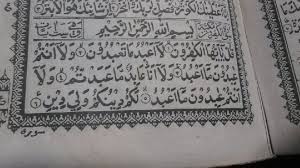 بِسْمِ اللّٰهِ الرَّحْمٰنِ الرَّحِيْمِ
قُلْ يٰۤاَيُّهَا الْكٰفِرُوْنَ لَاۤ اَعْبُدُ مَا تَعْبُدُوْنَ وَلَاۤ اَنْتُمْ
عٰبِدُوْنَ مَاۤ اَعْبُدُ وَلَاۤ اَنَا عَابِدٌ مَّا عَبَدْتُّمْ وَلَاۤ
اَنْتُمْ عٰبِدُوْنَ مَاۤ اَعْبُدُ لَكُمْ دِيْنُكُمْ وَلِيَ دِيْنِ
سورة